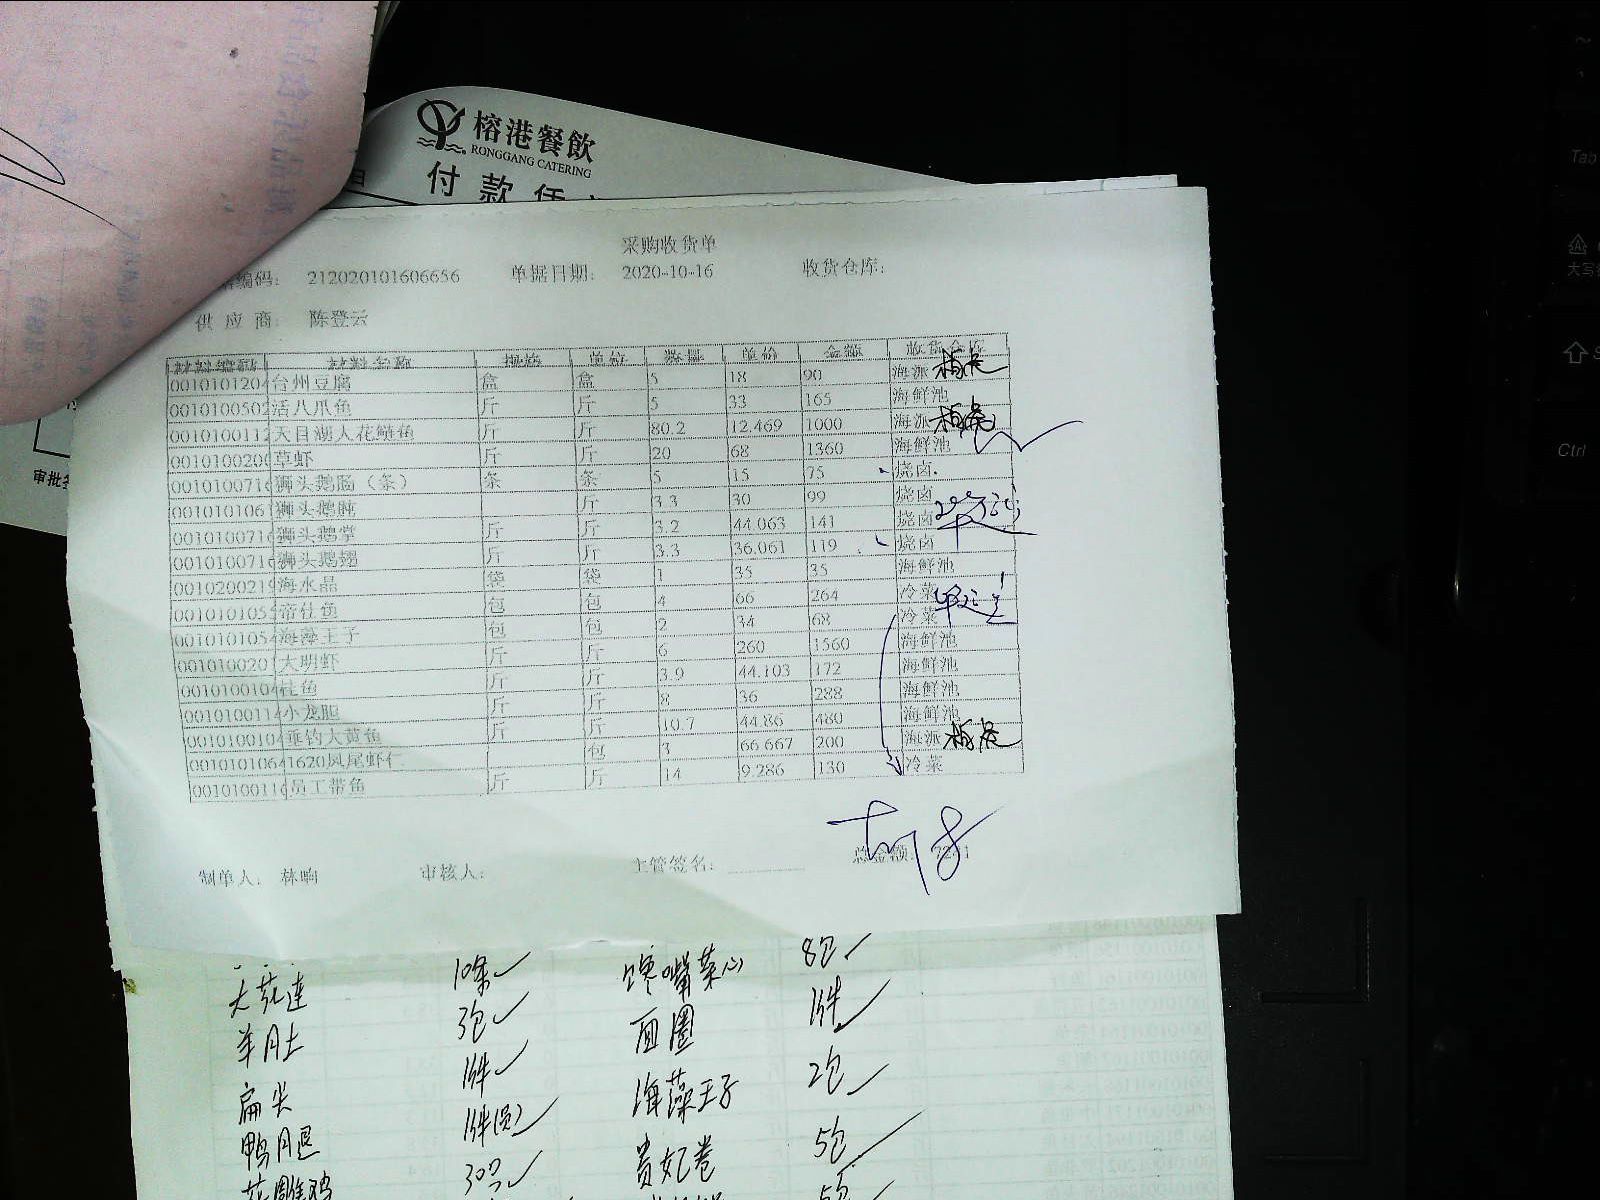 榕港餐飲
RONGGANG CATERING
付款凭
采购收货单
编码: 212020101606656 单据日期: 2020-10-16 收货仓库:
供应商: 陈登云
材料编码 材料名称 规格 单位 数量 单价 金额 收货仓库
0010101204 台州豆腐 盒 盒 5 18 90 海派
0010100502 活八爪鱼 斤 斤 5 33 165 海鲜池
0010100112 天目湖大花鲢鱼 斤 斤 80.2 12.469 1000 海派
0010100200 草虾 斤 斤 20 68 1360 海鲜池
0010100716 狮头鹅肠(条) 条 条 5 15 75 烧卤
001010106 狮头鹅肫 斤 3.3 30 99 烧卤
001010071 狮头鹅掌 斤 斤 3.2 44.063 141 烧卤
001010071 狮头鹅翅 斤 斤 3.3 36.061 119 烧卤
001020021 海水晶 袋 袋 1 35 35 海鲜池
001010105 希鲮鱼 包 包 4 66 264 冷菜
001010105 海藻王子 包 包 2 34 68 冷菜
001010020 大明虾 斤 斤 6 260 1560 海鲜池
001010010 桂鱼 斤 斤 3.9 44.103 172 海鲜池
001010011 小龙胆 斤 斤 8 36 288 海鲜池
001010010 垂钓大黄鱼 斤 斤 10.7 44.86 480 海鲜池
0010101064 1620凤尾虾仁 包 3 66.667 200 海派
001010011 员工带鱼 斤 斤 14 9.286 130 冷菜
制单人: 林响 审核人: 主管签名: 总金额:
大花连 10条 馋嘴菜心 8包
羊肚 3包 面圈 1件
扁尖 1件 海藻王子 2包
鸭腿 1件(员) 贵妃卷 5包
花雕鸡 30只 5包
审批
Tab
大写
Ctrl